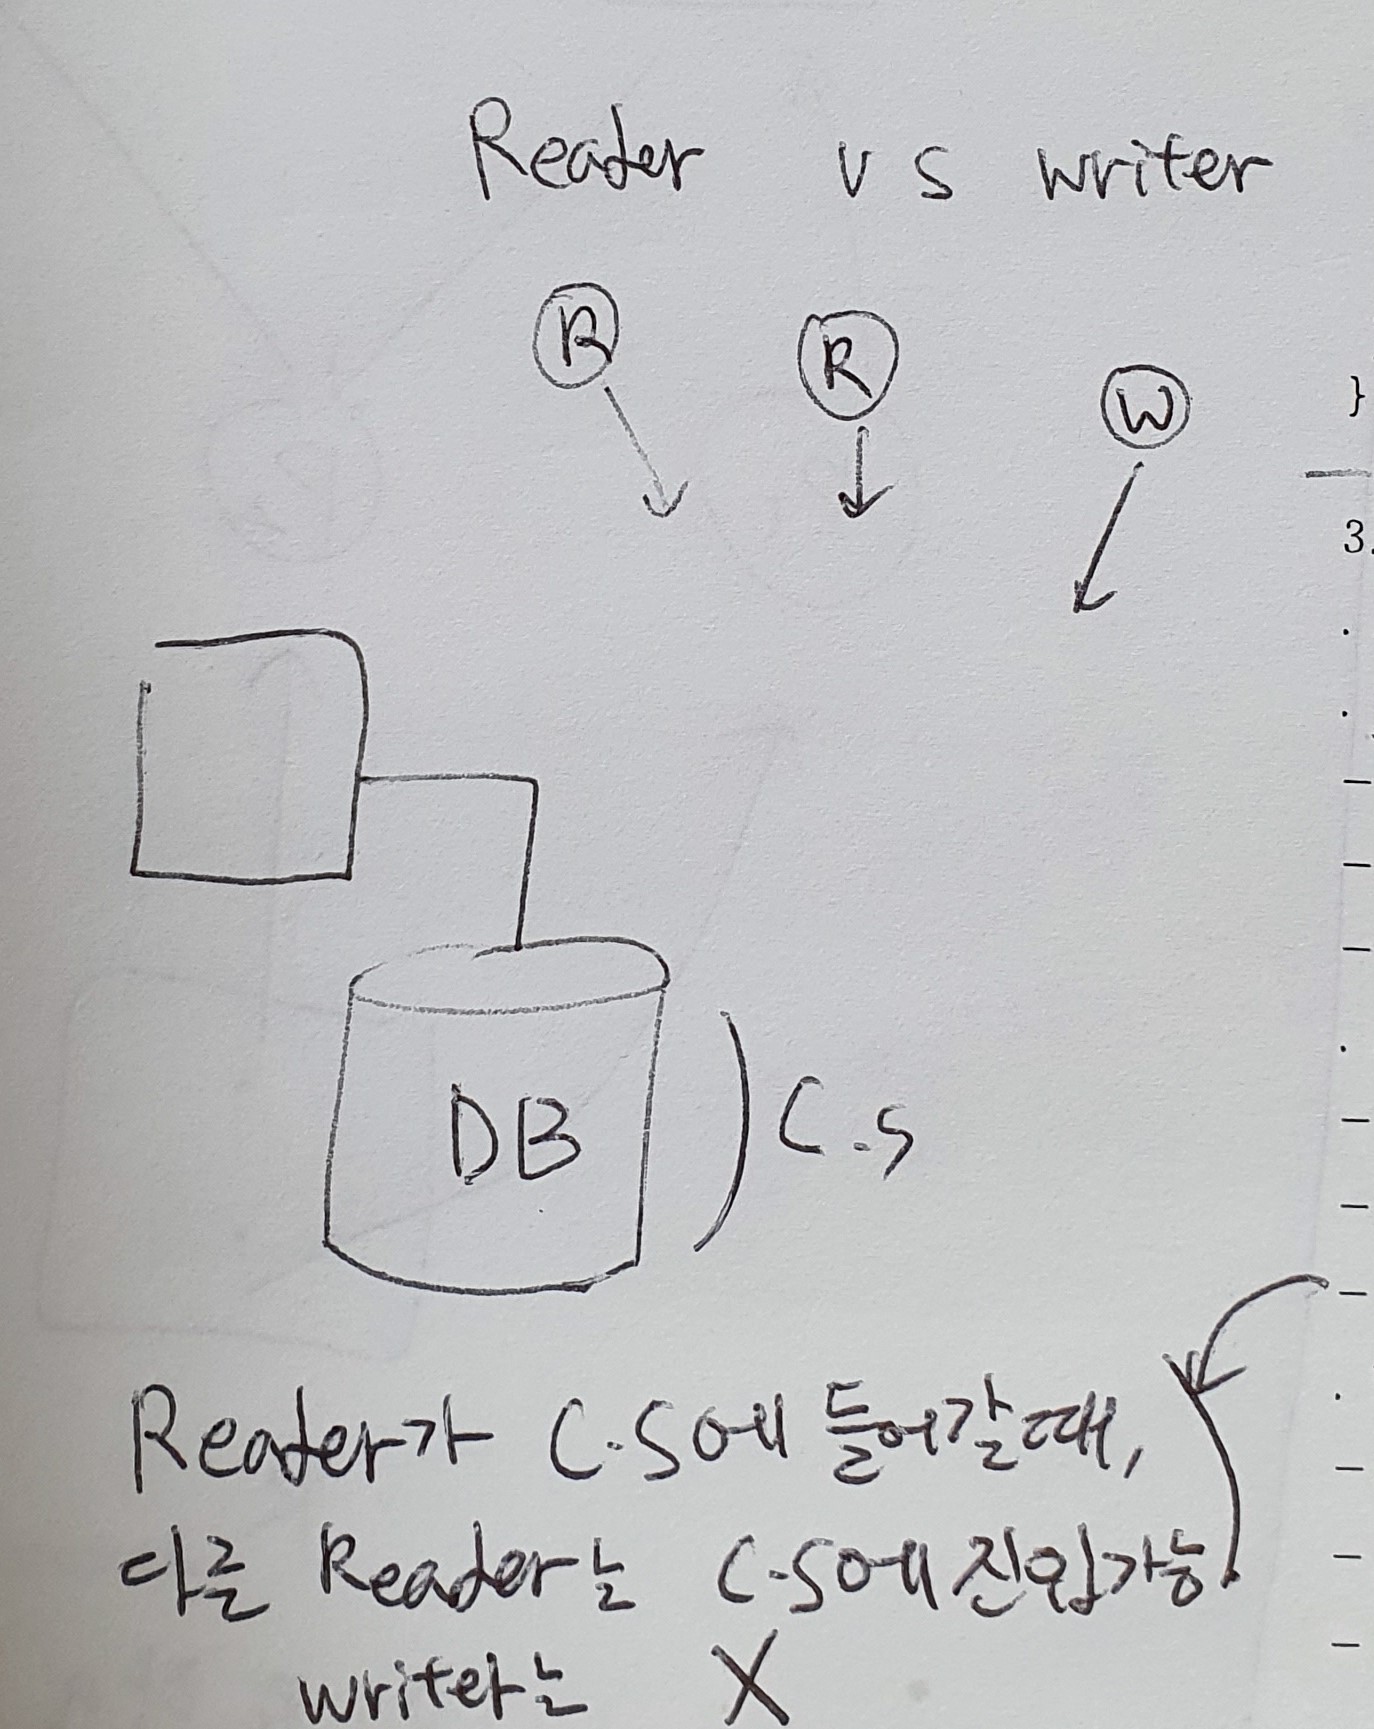 Reader vs writer
R R W
}
3.
DB C.S
Reader가 C.S에 들어갈때,
다른 Reader는 C.S에 진입가능.
writer는 X